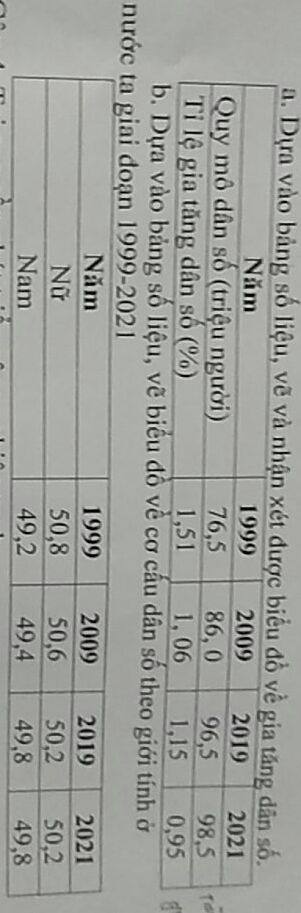 a. Dựa vào bảng số liệu, vẽ và nhận xét được biểu đồ về gia tăng dân số.
Năm 1999 2009 2019 2021
Quy mô dân số (triệu người) 76,5 86, 0 96,5 98,5
Tỉ lệ gia tăng dân số (%) 1,51 1, 06 1,15 0,95
b. Dựa vào bảng số liệu, vẽ biểu đồ về cơ cấu dân số theo giới tính ở
nước ta giai đoạn 1999-2021
Năm 1999 2009 2019 2021
Nữ 50,8 50,6 50,2 50,2
Nam 49,2 49,4 49,8 49,8